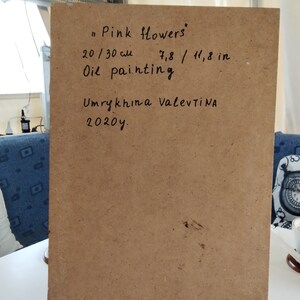 „Pink flowers"
20/30см 7,8 / 11,8 in
Oil painting
Umrykhina Valevtina
2020г.